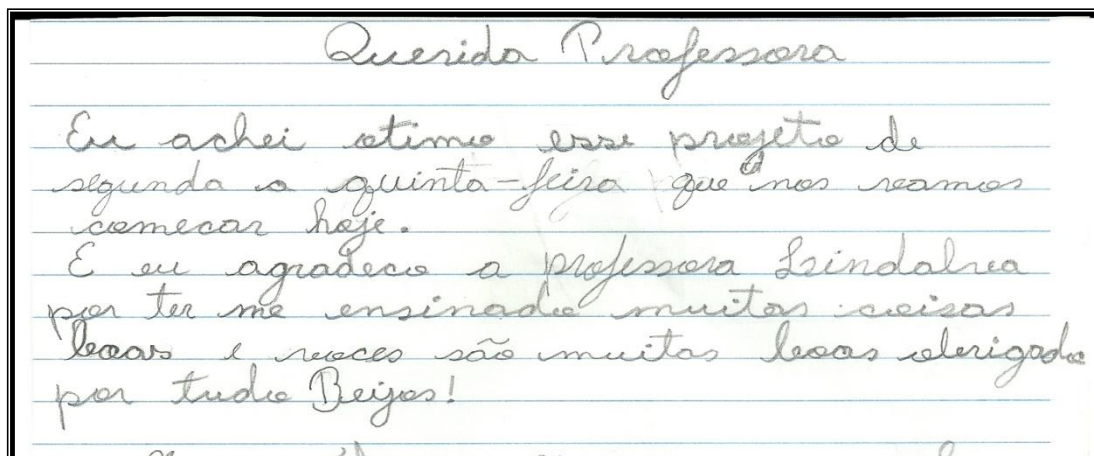 Querida Professora
Eu achei otimo esse projeto de
segunda a quinta-feira que nos vamos
comecar hoje.
E eu agradeco a professora Lindalva
por ter me ensinado muitas coisas
boas e voces são muitas boas obrigado
por tudo Beijos!